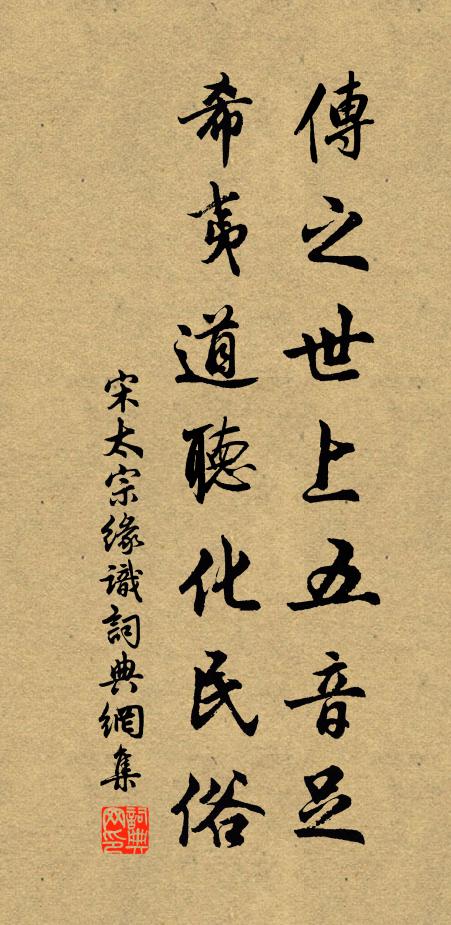 傳之世上五音足
希夷道聽化民俗
宋太宗緣識詞典網集
詞典网印